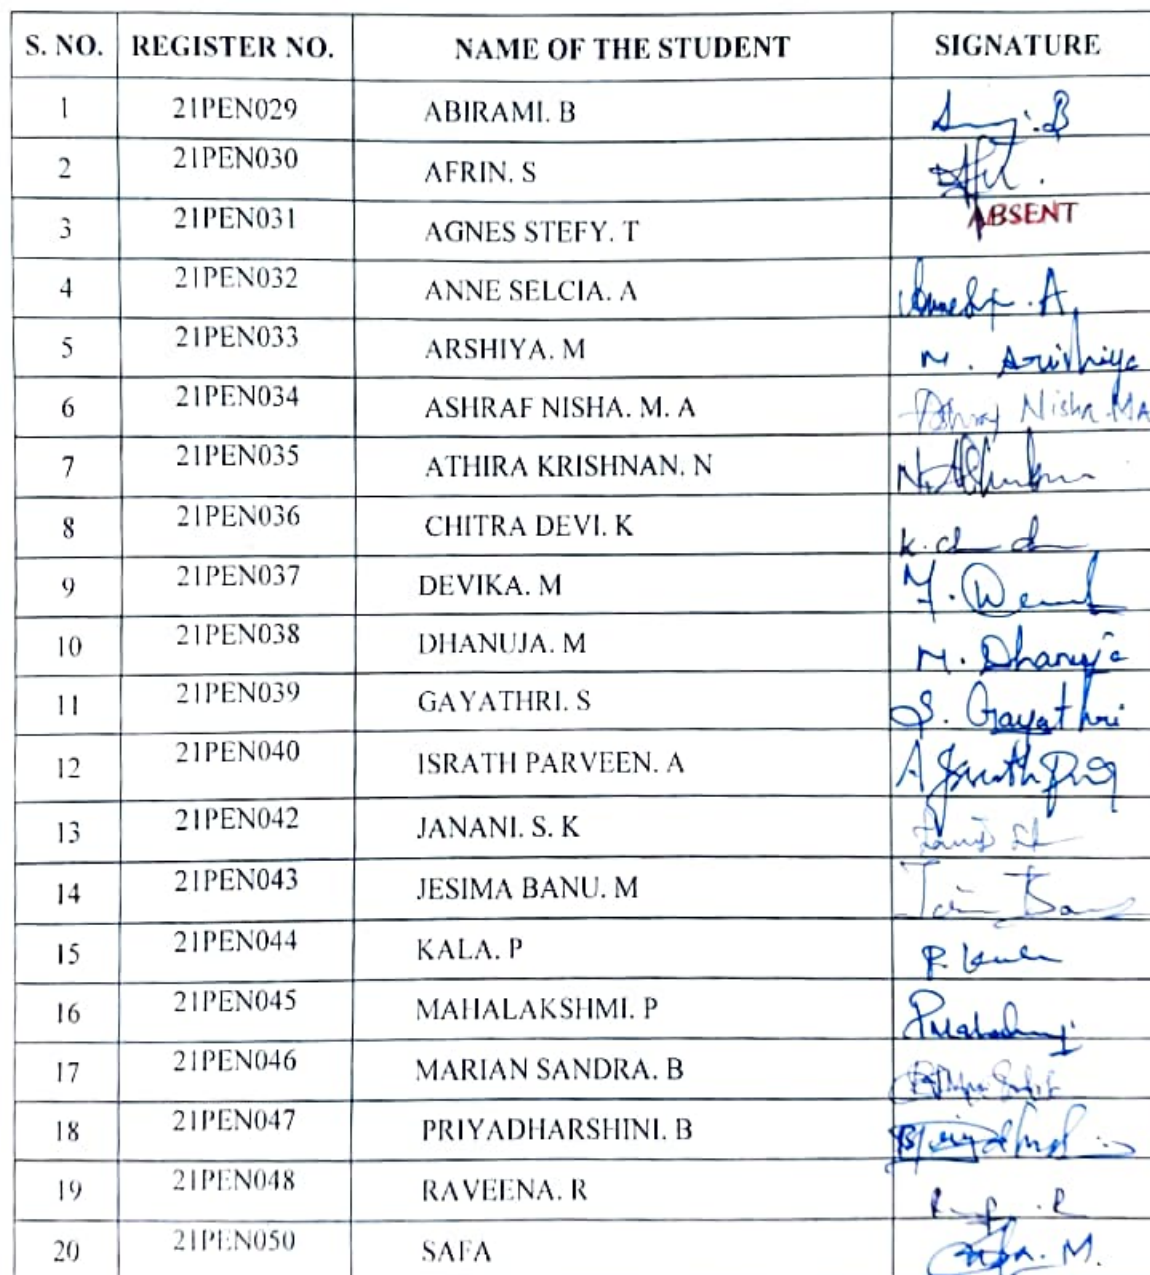 S. NO. REGISTER NO. NAME OF THE STUDENT SIGNATURE
1 21PEN029 ABIRAMI. B
2 21PEN030 AFRIN. S
3 21PEN031 AGNES STEFY. T ABSENT
4 21PEN032 ANNE SELCIA. A
5 21PEN033 ARSHIYA. M
6 21PEN034 ASHRAF NISHA. M. A Nisha. MA
7 21PEN035 ATHIRA KRISHNAN. N
8 21PEN036 CHITRA DEVI. K
9 21PEN037 DEVIKA. M
10 21PEN038 DHANUJA. M M. Dhanuja
11 21PEN039 GAYATHRI. S S. Gayathri
12 21PEN040 ISRATH PARVEEN. A
13 21PEN042 JANANI. S. K
14 21PEN043 JESIMA BANU. M
15 21PEN044 KALA. P
16 21PEN045 MAHALAKSHMI. P
17 21PEN046 MARIAN SANDRA. B
18 21PEN047 PRIYADHARSHINI. B
19 21PEN048 RAVEENA. R
20 21PEN050 SAFA